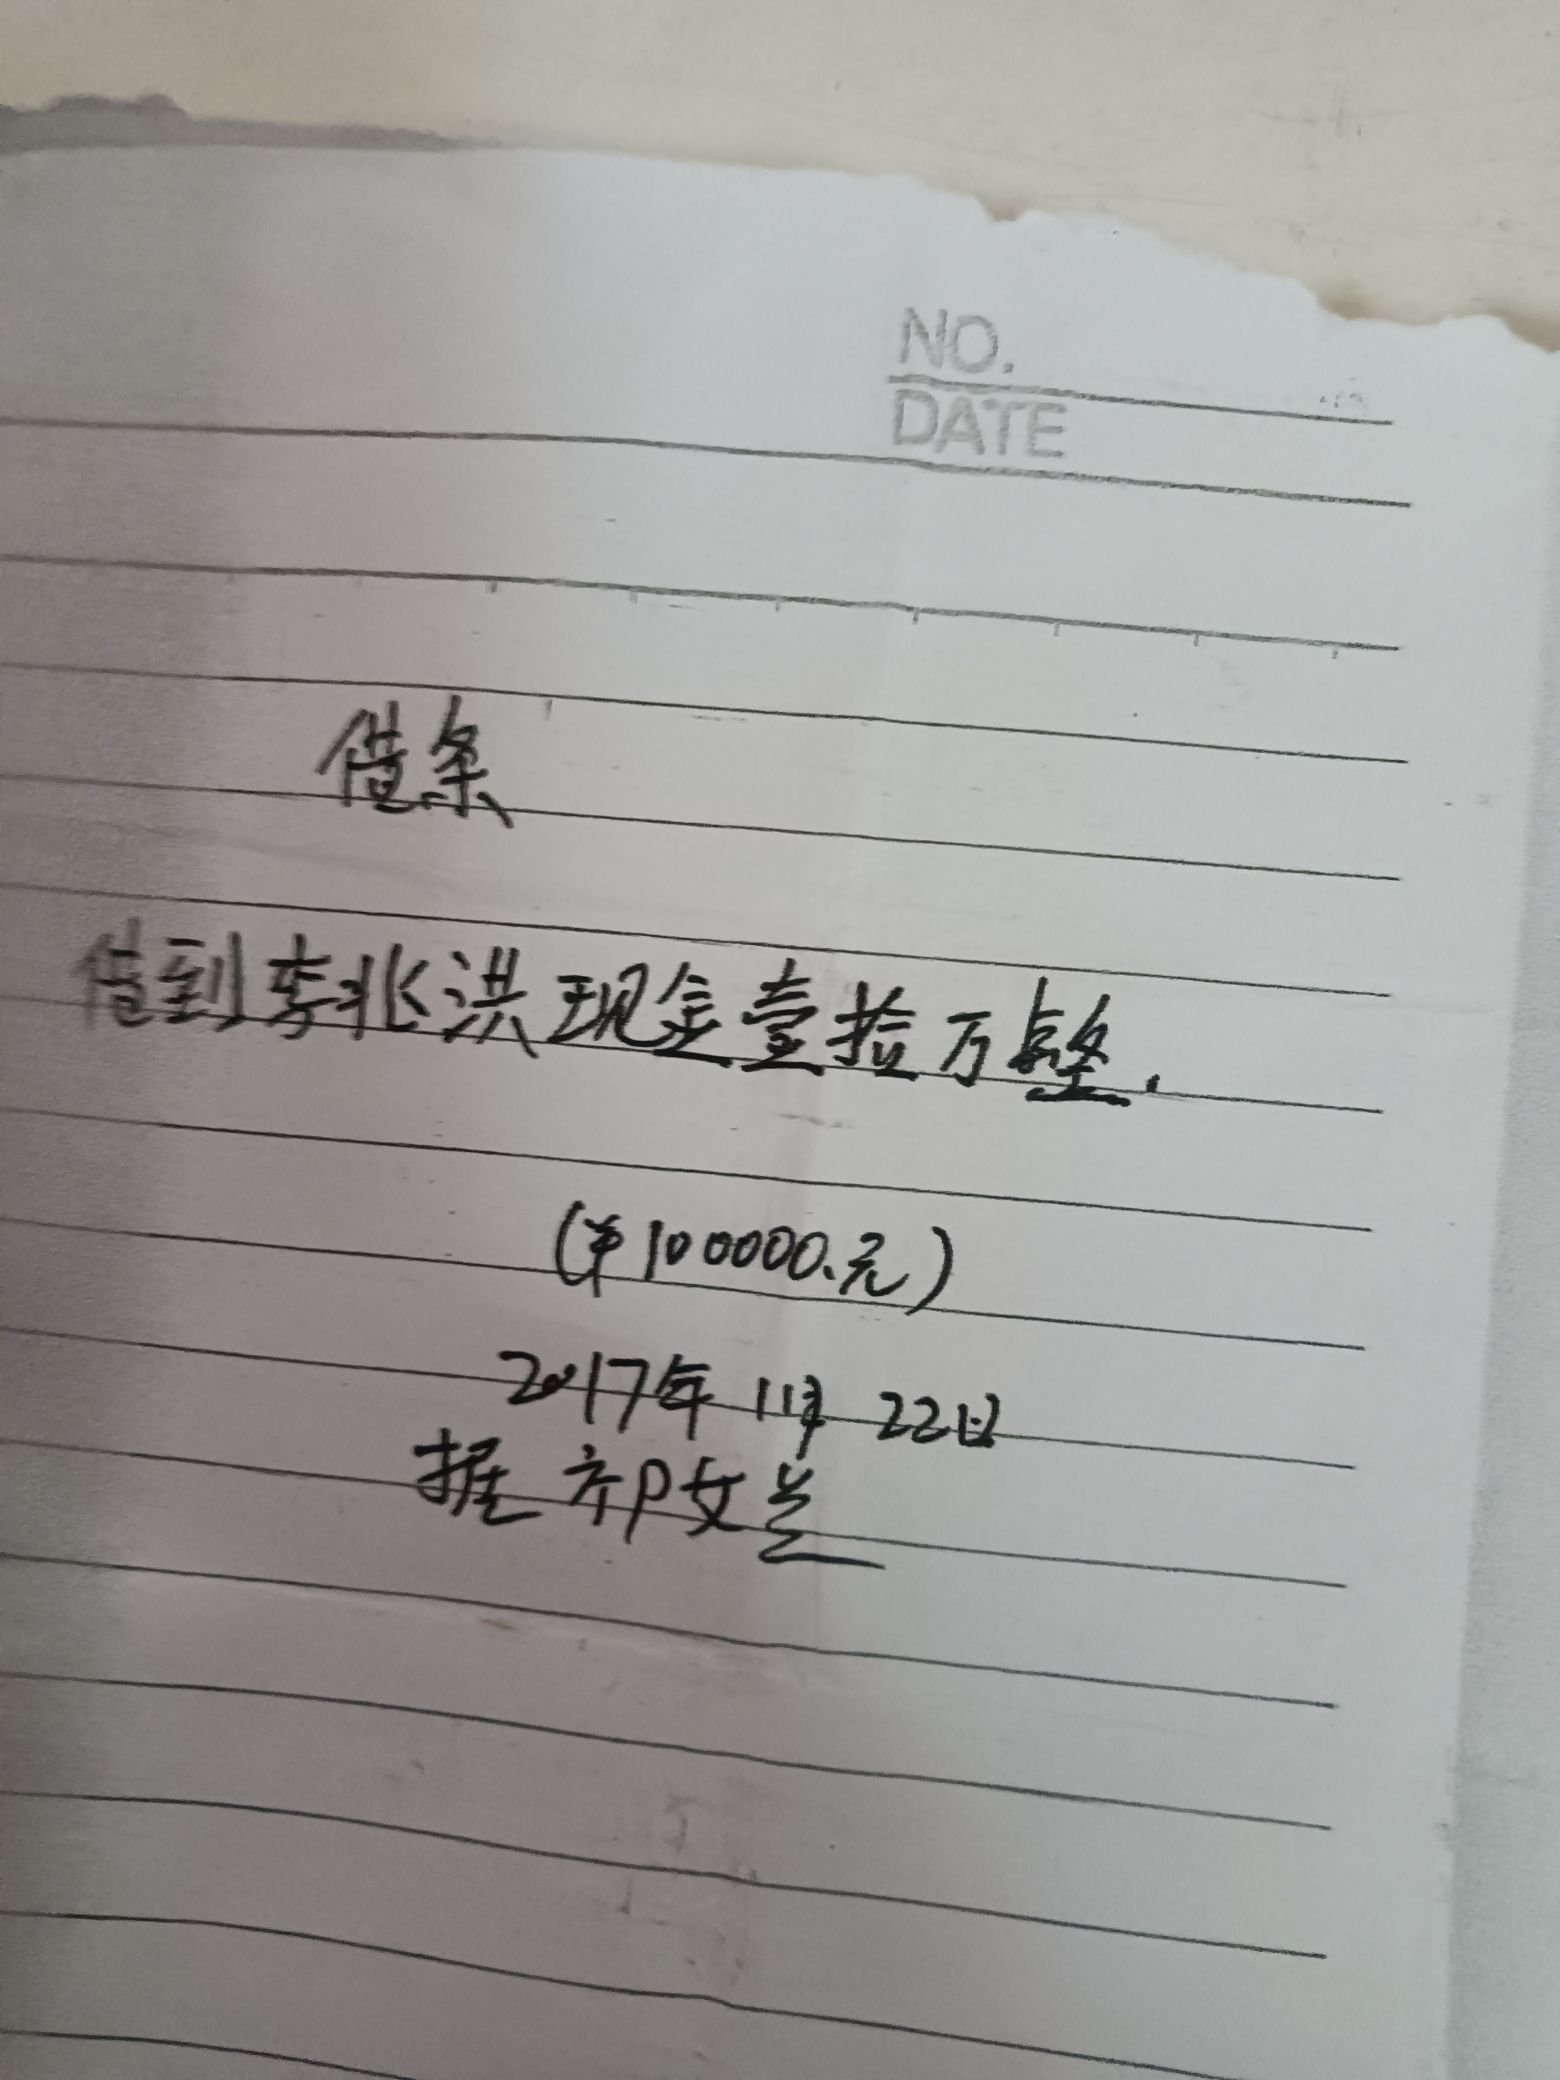 NO.
DATE
借条
借到李兆洪现金壹拾万整.
(¥100000.元)
2017年11月22日
据 祁文兰